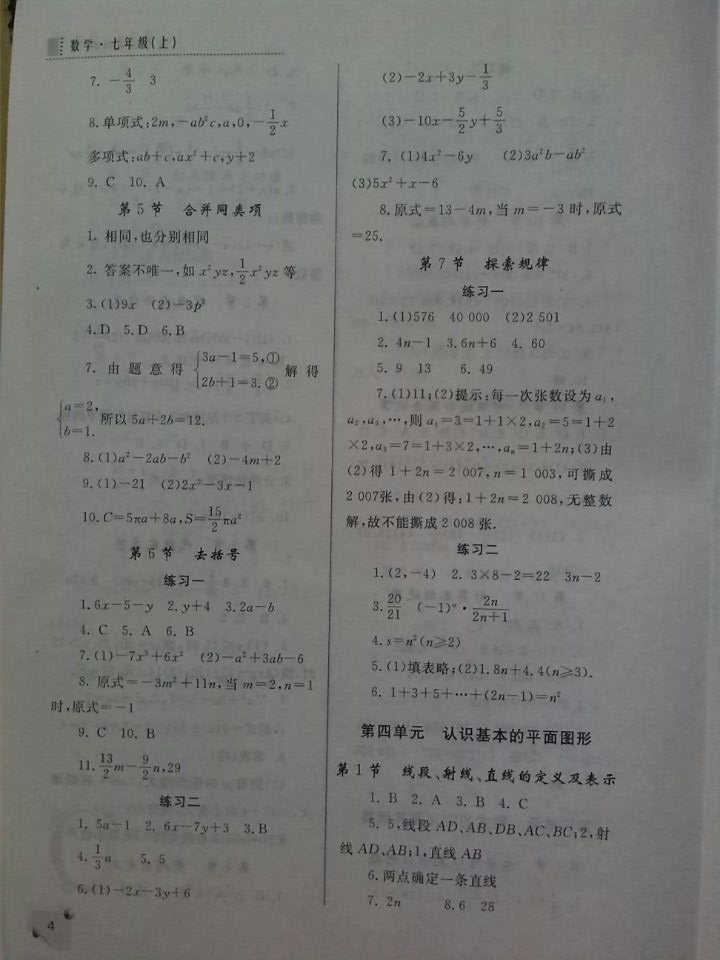 数学·七年级(上)
7. －4/3　3
8.单项式:2m,－ab²c,a,0,－1/2x
多项式:ab＋c,ax²＋c,y＋2
9. C　10. A
第5节　合并同类项
1. 相同,也分别相同
2. 答案不唯一,如x²yz,1/2x²yz等
3.(1)9x　(2)－3p²
4.D　5.D　6.B
7. 由题意得{3a－1＝5,① 2b＋1＝3.② 解得
{a＝2, b＝1. 所以5a＋2b＝12.
8.(1)a²－2ab－b²　(2)－4m＋2
9.(1)－21　(2)2x²－3x－1
10.C＝5πa＋8a,S＝15/2πa²
第6节　去括号
练习一
1.6x－5－y　2.y＋4　3.2a－b
4. C　5. A　6. B
7.(1)－7x³＋6x²　(2)－a²＋3ab－6
8. 原式＝－3m²＋11n,当m＝2,n＝1
时,原式＝－1
9. C　10. B
11.13/2m－9/2n,29
练习二
1. 5a－1　2. 6x－7y＋3　3.B
4.1/3a　5. 5
6.(1)－2x－3y＋6
4
(2)－2x＋3y－1/3
(3)－10x－5/2y＋5/3
7. (1)4x²－6y　(2)3a²b－ab²
(3)5x²＋x－6
8.原式＝13－4m,当m＝－3时,原式
＝25.
第7节　探索规律
练习一
1.(1)576　40 000　(2)2 501
2. 4n－1　3.6n＋6　4. 60
5. 9　13　6. 49
7.(1)11;(2)提示:每一次张数设为a₁,
a₂,a₃,…,则a₁＝3＝1＋1×2,a₂＝5＝1＋2
×2,a₃＝7＝1＋3×2,…,aₙ＝1＋2n;(3)由
(2)得1＋2n＝2 007,n＝1 003,可撕成
2 007张,由(2)得:1＋2n＝2 008,无整数
解,故不能撕成2 008张.
练习二
1.(2,－4)　2. 3×8－2＝22　3n－2
3.20/21　(－1)ⁿ·2n/2n＋1
4.s＝n²(n≥2)
5.(1)填表略;(2)1.8n＋4.4(n≥3).
6. 1＋3＋5＋…＋(2n－1)＝n²
第四单元　认识基本的平面图形
第1节　线段、射线、直线的定义及表示
1. B　2. A　3. B　4. C
5. 5,线段AD、AB、DB、AC、BC;2,射
线AD、AB;1,直线AB
6.两点确定一条直线
7. 2n　8.6　28